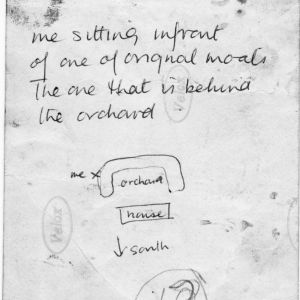 me sitting infront
of one of original moats
The one that is behind
the orchard
me x
orchard
house
↓ south
Velox
Velox